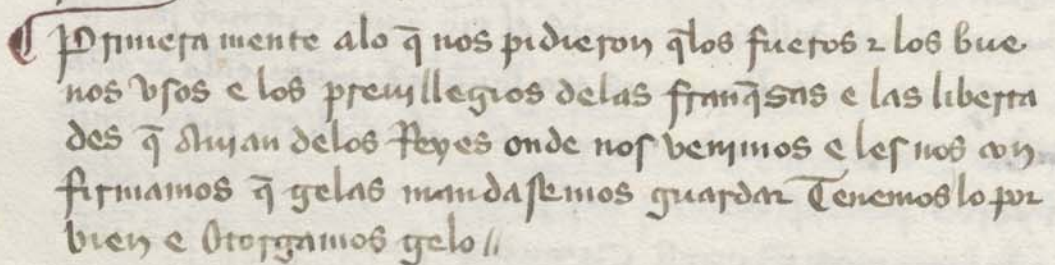 ¶ Primera mente alo q̄ nos pidieron q̄los fueros ⁊ los bue
nos vsos e los preuillegios delas franq̄sas e las liberta
des q̄ Auian delos Reyes onde nos venimos e les nos con
firmamos q̄ gelas mandasemos guardar Tenemos lo por
bien e Otorgamos gelo //